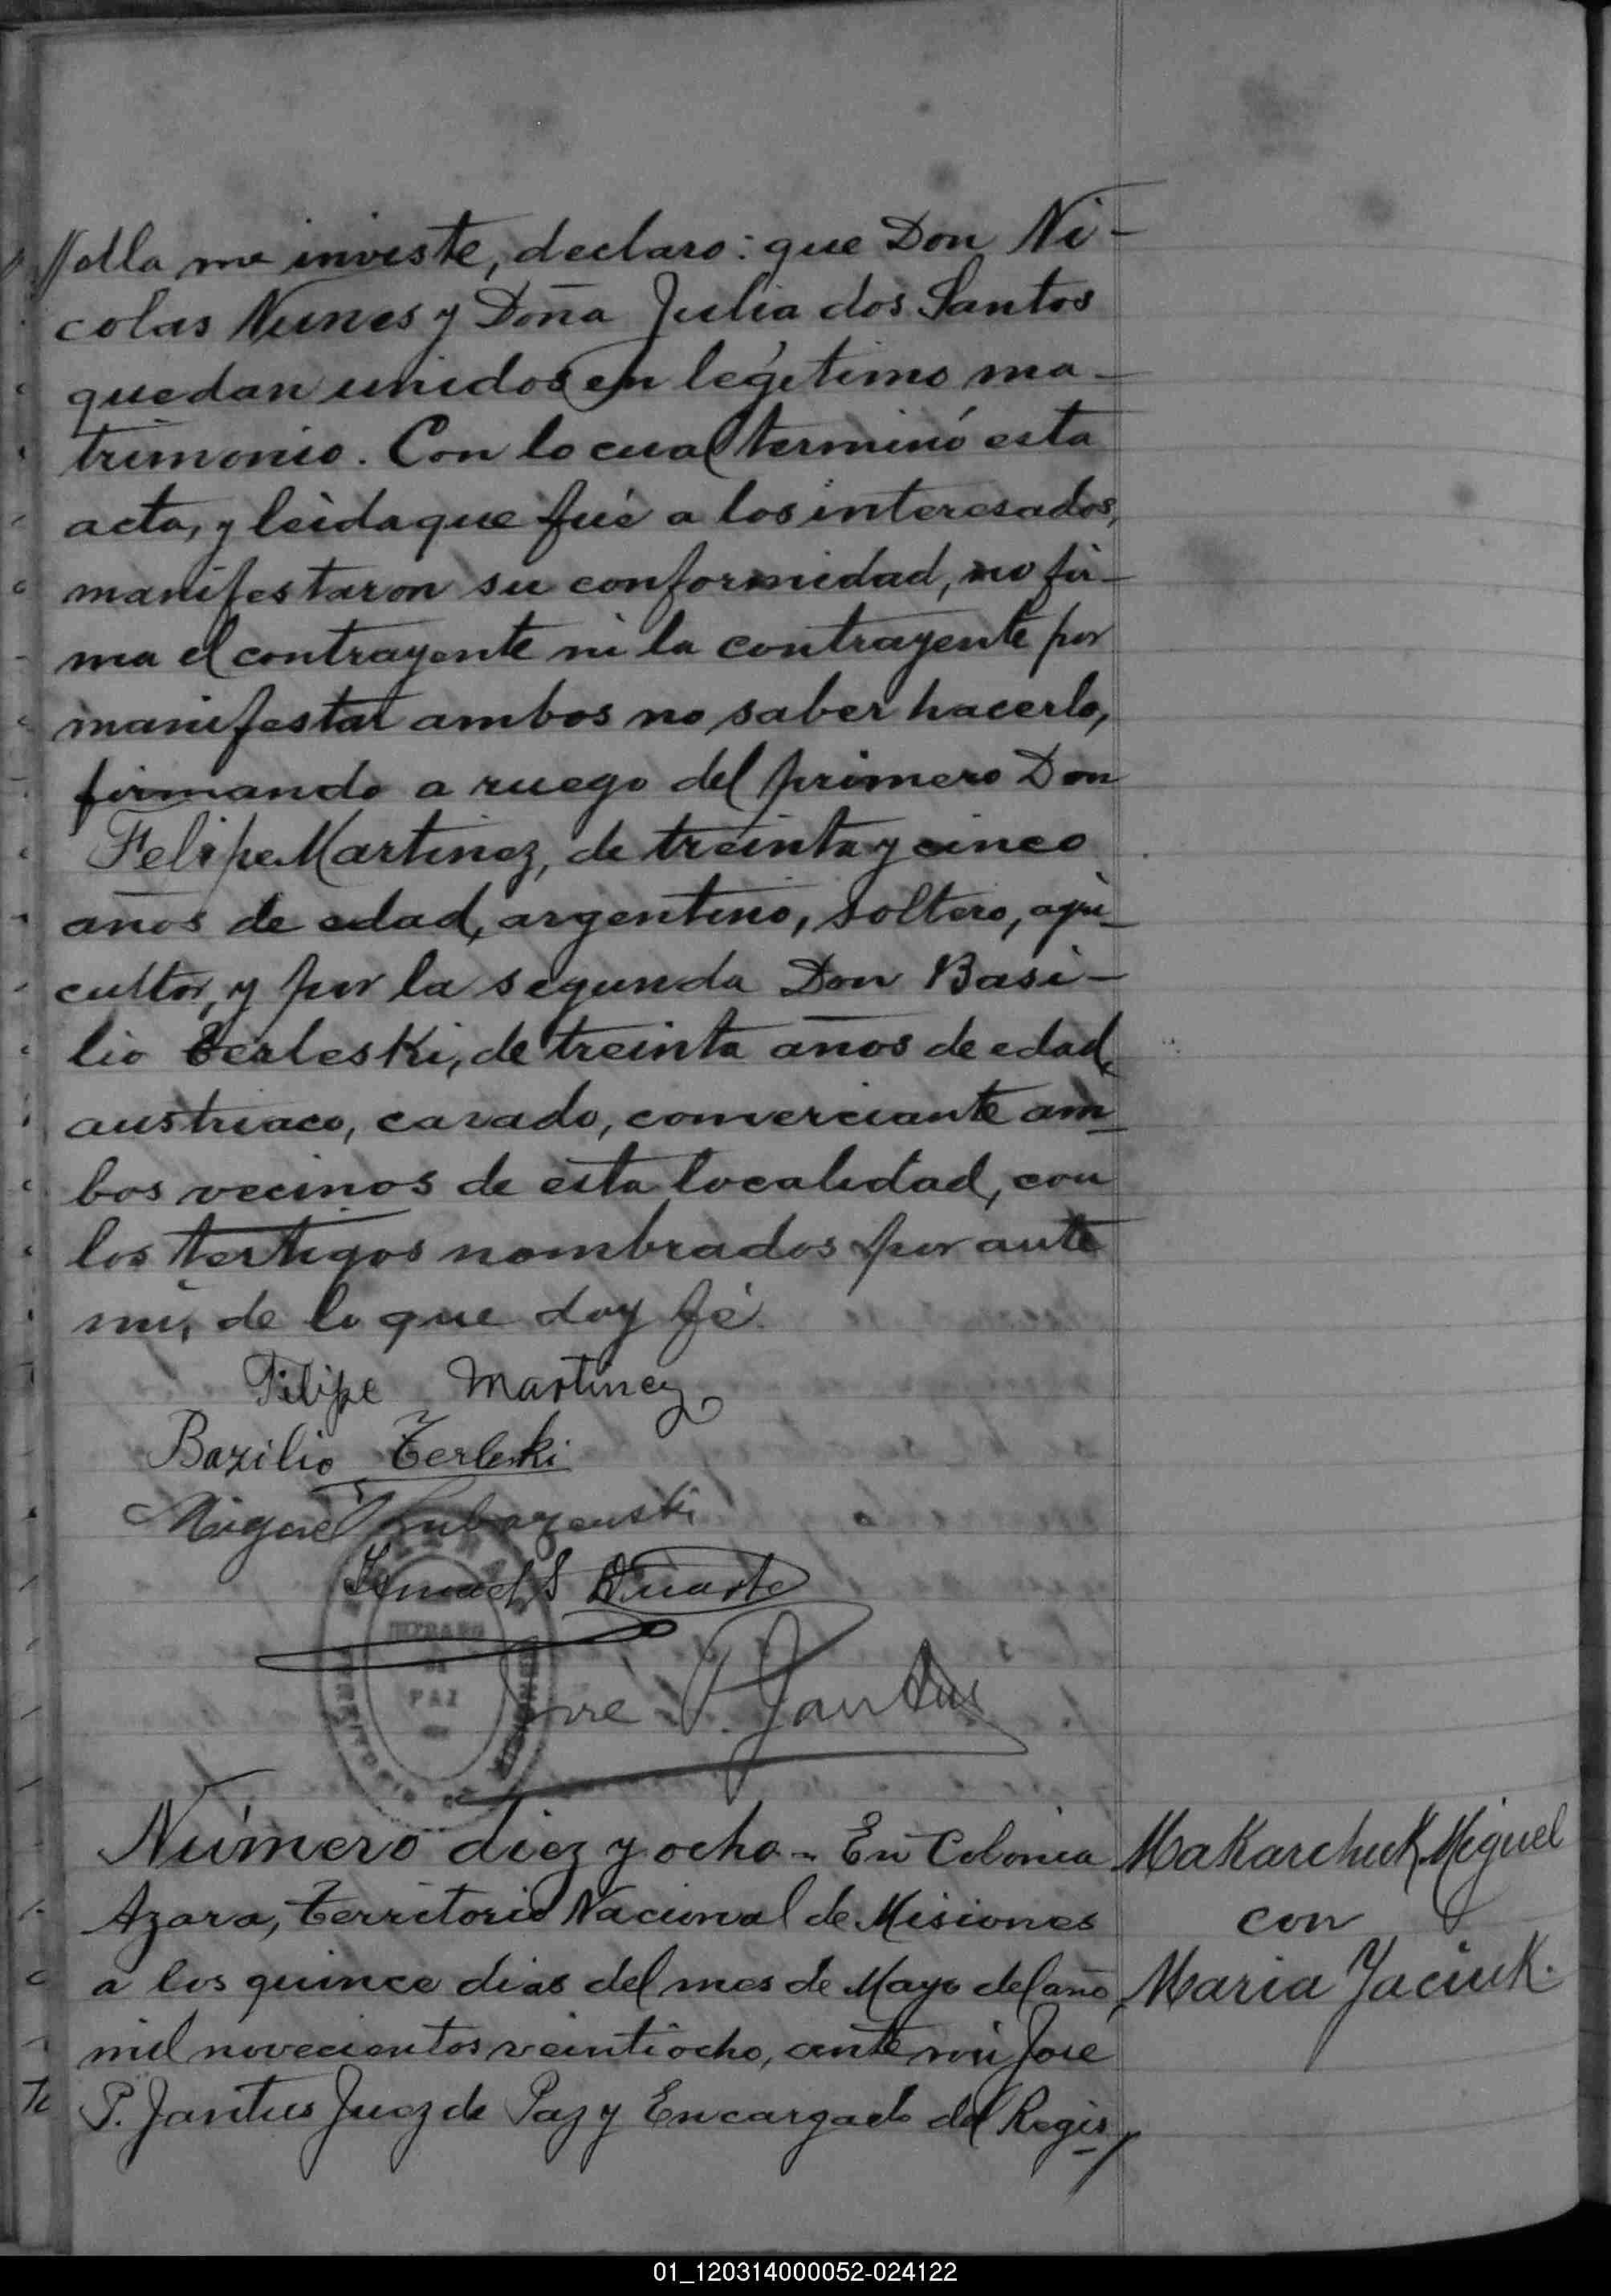 //ella me inviste, declaro: que Don Ni-
colas Nunes y Doña Julia dos Santos
quedan unidos en legítimo ma-
trimonio. Con lo cual terminó esta
acta, y leida que fué a los interesados,
manifestaron su conformidad, no fir-
ma el contrayente ni la contrayente por
manifestar ambos no saber hacerlo,
firmando a ruego del primero Don
Felipe Martinez, de treinta y cinco
años de edad, argentino, soltero, agri-
cultor, y por la segunda Don Basi-
lio Terleski, de treinta años de edad,
austriaco, casado, comerciante am-
bos vecinos de esta localidad, con
los testigos nombrados por ante
mi, de lo que doy fé.
Filipe Martinez
Bazilio Terleski
Miguel
Ismael S Duarte
JUZGADO
DE
PAZ
TERRITORIO DE MISIONES
José P. Jantus
Número diez y ocho - En Colonia
Azara, Territorio Nacional de Misiones
a los quince dias del mes de Mayo del año
mil novecientos veintiocho, ante mi José
P. Jantus Juez de Paz y Encargado del Regis/
Makarchuk Miguel
con
Maria Jaciuk.
01_120314000052-024122